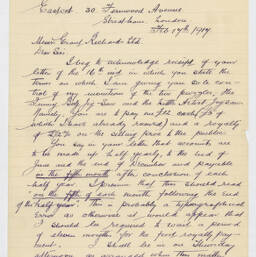 30 Fernwood Avenue
Streatham, London
Feb 17th/1914
Messrs Grant Richards Ltd
Dear Sirs
I beg to acknowledge receipt of your
letter of the 16th inst in which you state the
terms on which I am giving you sole con-
trol of my invention of the two puzzles, the
Jig Saw and the Jig Saw
Namely. You are to pay me cash
which I have already and a royalty
of on the selling price to the public.
You say in your letter that accounts are
to be made up half yearly, to the end of
June and the end of December and payable
in the fifth month after conclusion of each
half year. I presume that this should read
"on the fifth of each month following the end
of the half year". This is probably a typographical
error as otherwise it would appear that
I should be required to wait a period
of eleven months for the first royalty pay-
ment. I shall be in on Thursday
afternoon as arranged when this matter